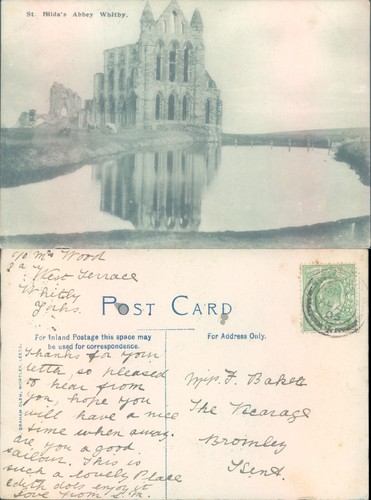 St. Hilda's Abbey Whitby.
c/o Mrs Wood
West Terrace
Whitby
Yorks.
POST CARD
For Inland Postage this space may
be used for correspondence.
For Address Only.
Thanks for your
letth, so pleased
to hear from
you, hope you
will have a nice
time when away.
are you a good
sailour. This is
such a lovely Place
edith does enjoy it
Love from
Miss F. Baker
The Vicarage
Bromley
Kent.